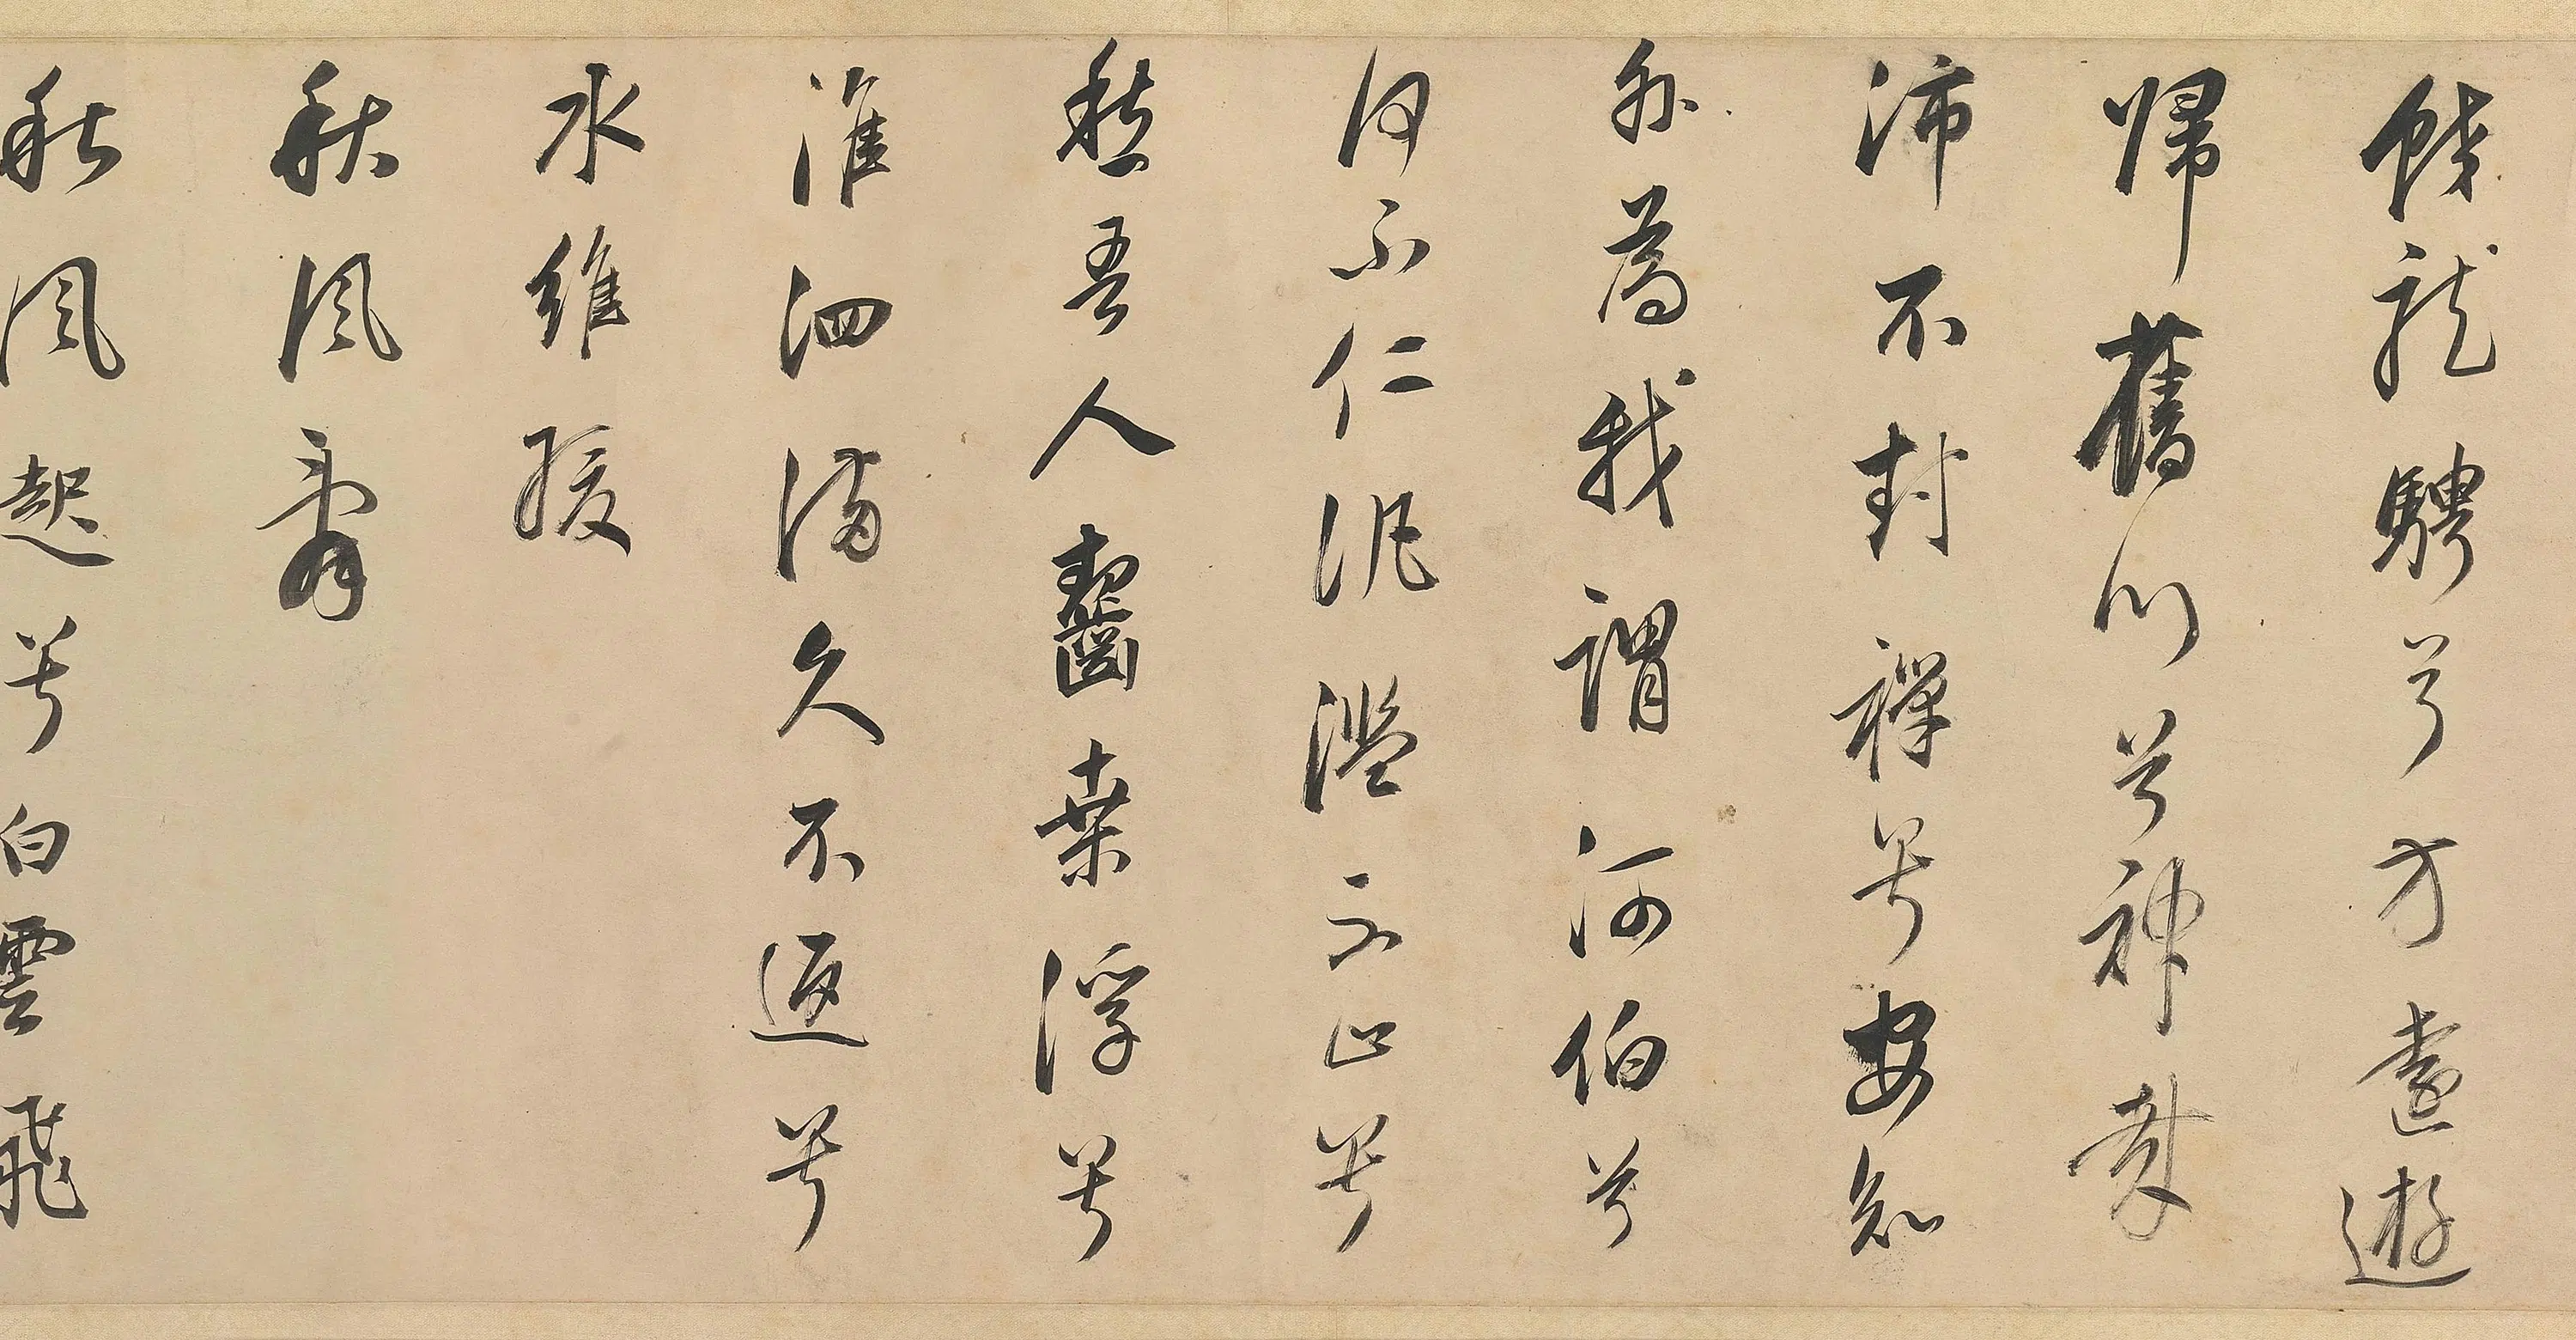 蛟龍騁兮方遠遊
帰舊川兮神哉
沛不封禪兮安知
外為我謂河伯兮
何不仁氾濫不止兮
愁吾人齧桒浮兮
淮泗滿久不返兮
水維緩
秋風辭
秋風起兮白雲飛